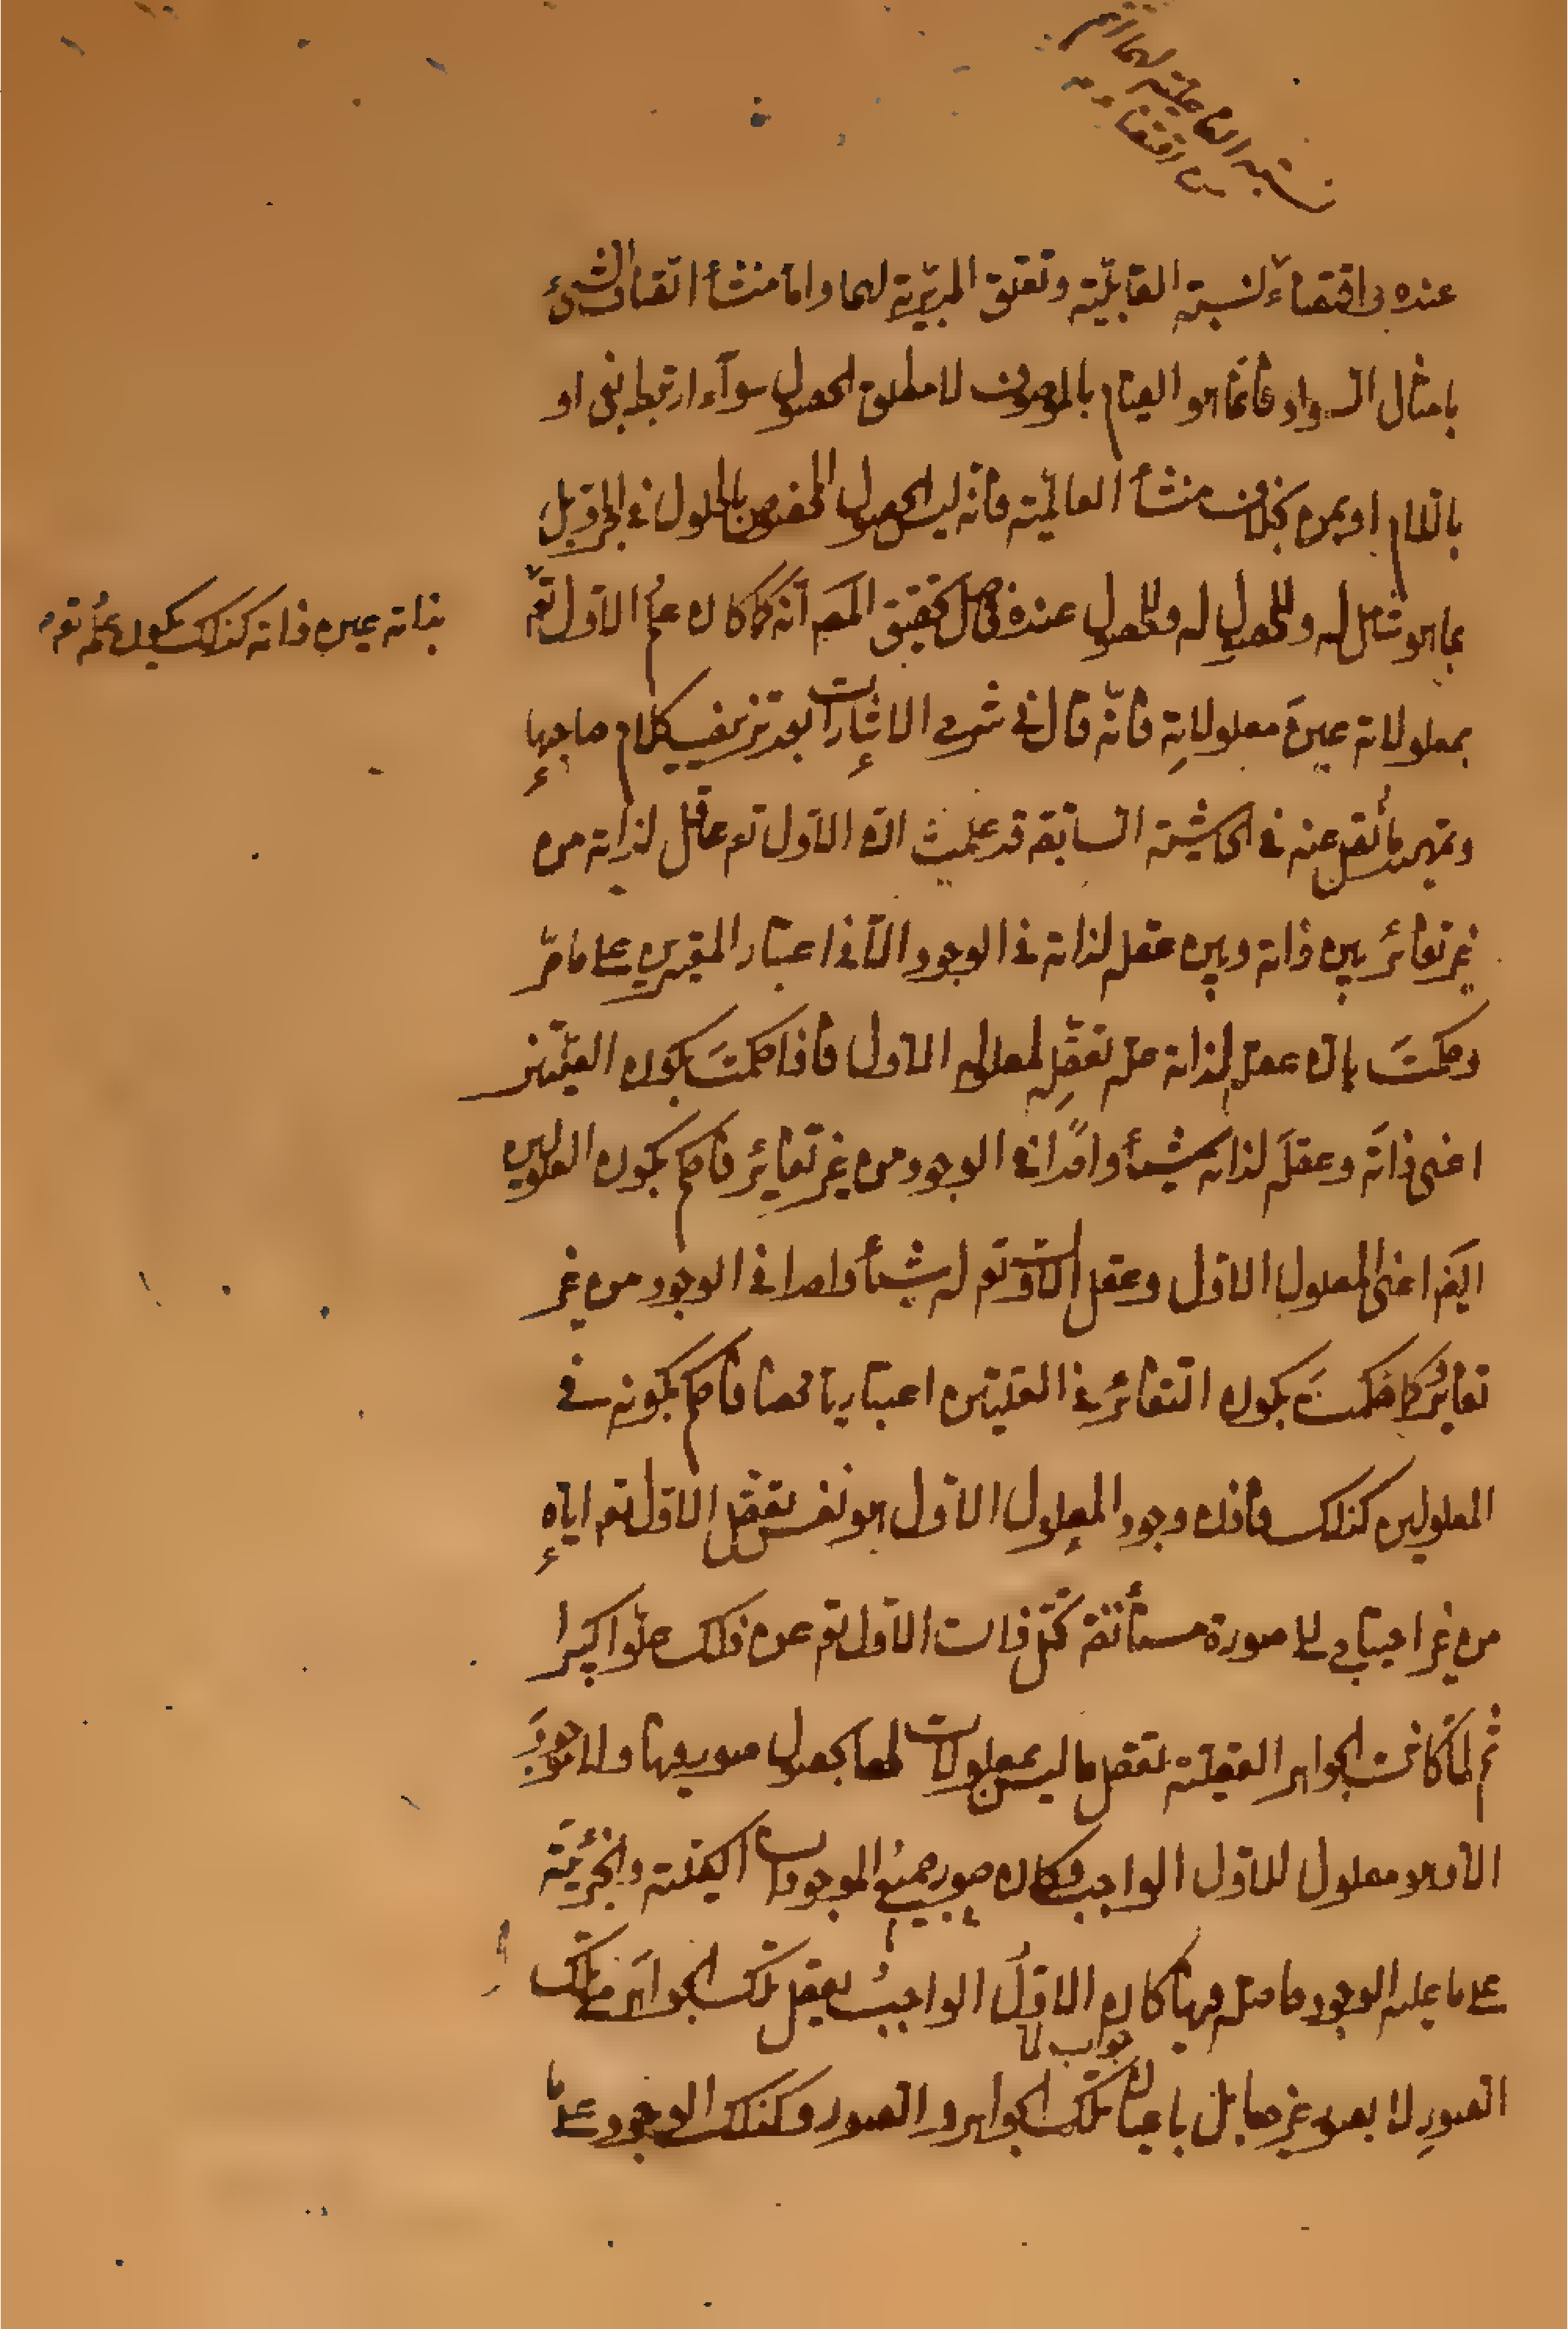 نسبة الفاعلية لهما اتم
من اقتضاء
عنده فى اقتضاء نسبة القابلية وتعلق المميزية لهما واما منشأ اتصاف الشىء
بامثال السواد فانما هو القيام بالموصوف لا مطلق الحصول سوآء ارتبط بفى او
باللام او بمن بخلاف منشأ العالمية فانه ليس الحصول المخصوص بالحلول فى المجرد بل
بما هو شامل له وللحصول له وللحصول عنده فحاصل تحقيق المص انه كما كان علم الاول تع
بذاته عين ذاته كذلك يكون علمه تع
بمعلولاته عينَ معلولاتِه فانّه قال فى شرح الاشارات بعد تزييف كلام صاحبها
وتمهيد ما نقل عنه فى الحاشية السابقة قد علمت ان الاول تع عاقل لذاته من
غير تغائر بين ذاته وبين عقله لذاته فى الوجود الا فى اعتبار المعتبرين على ما مرّ
وحكمتَ بان عقله لذاته علة لعقله لمعلوله الاول فاذا حكمتَ بكون العلّتين
اعنى ذاته وعقلَه لذاته شيئأ واحدًا فى الوجود من غير تغايُر فاحكم بكون المعلولين
ايضَ اعنى المعلول الاول وعقل الاول تع له شيئأ واحدا فى الوجود من غير
تغائر كما حكمتَ بكون التغائر فى العلتين اعتباريا محضا فاحكم بكونه فى
المعلولين كذلك فاذن وجود المعلول الاول هو نفس تعقّل الاول تع اياه
من غير احتياج الى صورة مستأنفة تحلّ ذات الاول تع عن ذلك علوا كبيرا
ثم لمّا كانت الجواهر العقلية تعقل ما ليس بمعلولات لها بحصول صور فيها ولا موجودَ
الا وهو معلول للاول الواجب وكان صور جميع الموجودات الكلية والجزئيّة
على ما عليه الوجود حاصلة فيها كان الاولُ الواجبُ يعقل تلك الجواهرَ مع تلك
جواب لما
الصورِ لا بصور غيرها بل باعيان تلك الجواهر والصور وكذلك الوجود على ما